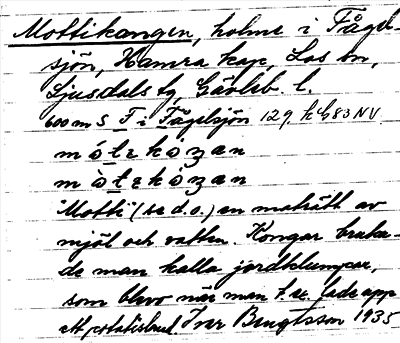 Mottikangen, holme i Fågel-
sjön, Hamra kap, Los sn,
Ljusdals tg, Gävleb. l.
600 m S F i Fågelsjön 129 h h 83 NV
"Motti" (se d.o.) en maträtt av
mjöl och vatten. Kongar bruka-
de man kalla jordklumpar,
som blevo när man t.ex. lade upp
ett potatisland Ivar Bengtsson 1935